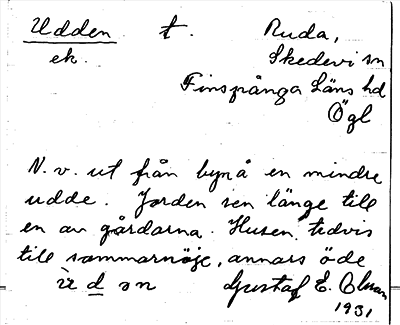 Udden t. Ruda,
ek. Skedevi sn
Finspånga Läns hd
Ögl
N. v. ut från byn å en mindre
udde. Jorden sen länge till
en av gårdarna. Husen tidvis
till sommarnöje, annars öde
Gustaf E. Olsson
1931